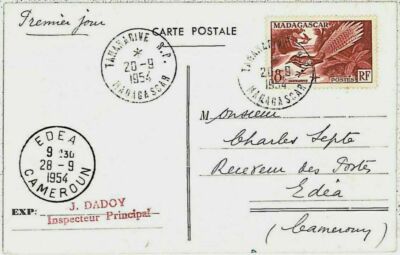 Premier jour
CARTE POSTALE
MADAGASCAR
8F
POSTES RF
TANANARIVE R.P.
*
20-9
1954
MADAGASCAR
TANANARIVE
20-9
1954
MADAGASCAR
Monsieur
Charles Septe
Receveur des Postes
Edéa
(Cameroun)
EDEA
28-9
1954
CAMEROUN
J. DADOY
EXP: Inspecteur Principal